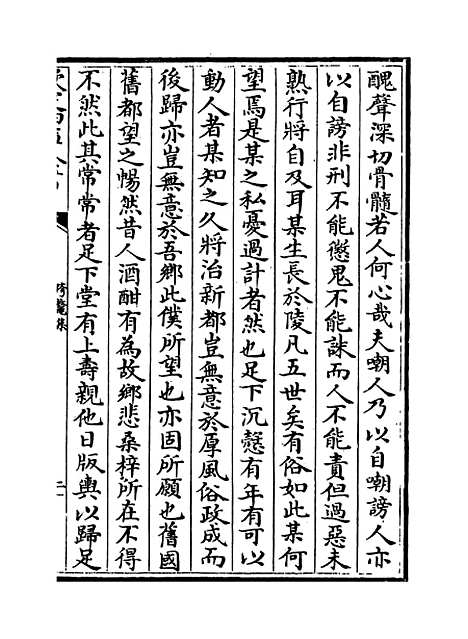 醜聲深切骨髓若人何心哉夫嘲人乃以自嘲謗人亦
以自謗非刑不能懲鬼不能誅而人不能責但過惡未
熟行將自及耳某生長於陵凡五世矣有俗如此某何
望焉是某之私憂過計者然也足下沉愨有年有可以
動人者某知之久將治新都豈無意於厚風俗政成而
後歸亦豈無意於吾鄉此僕所望也亦固所願也舊國
舊都望之暢然昔人酒酣有為故鄉悲桑梓所在不得
不然此其常常者足下堂有上壽親他日版輿以歸足